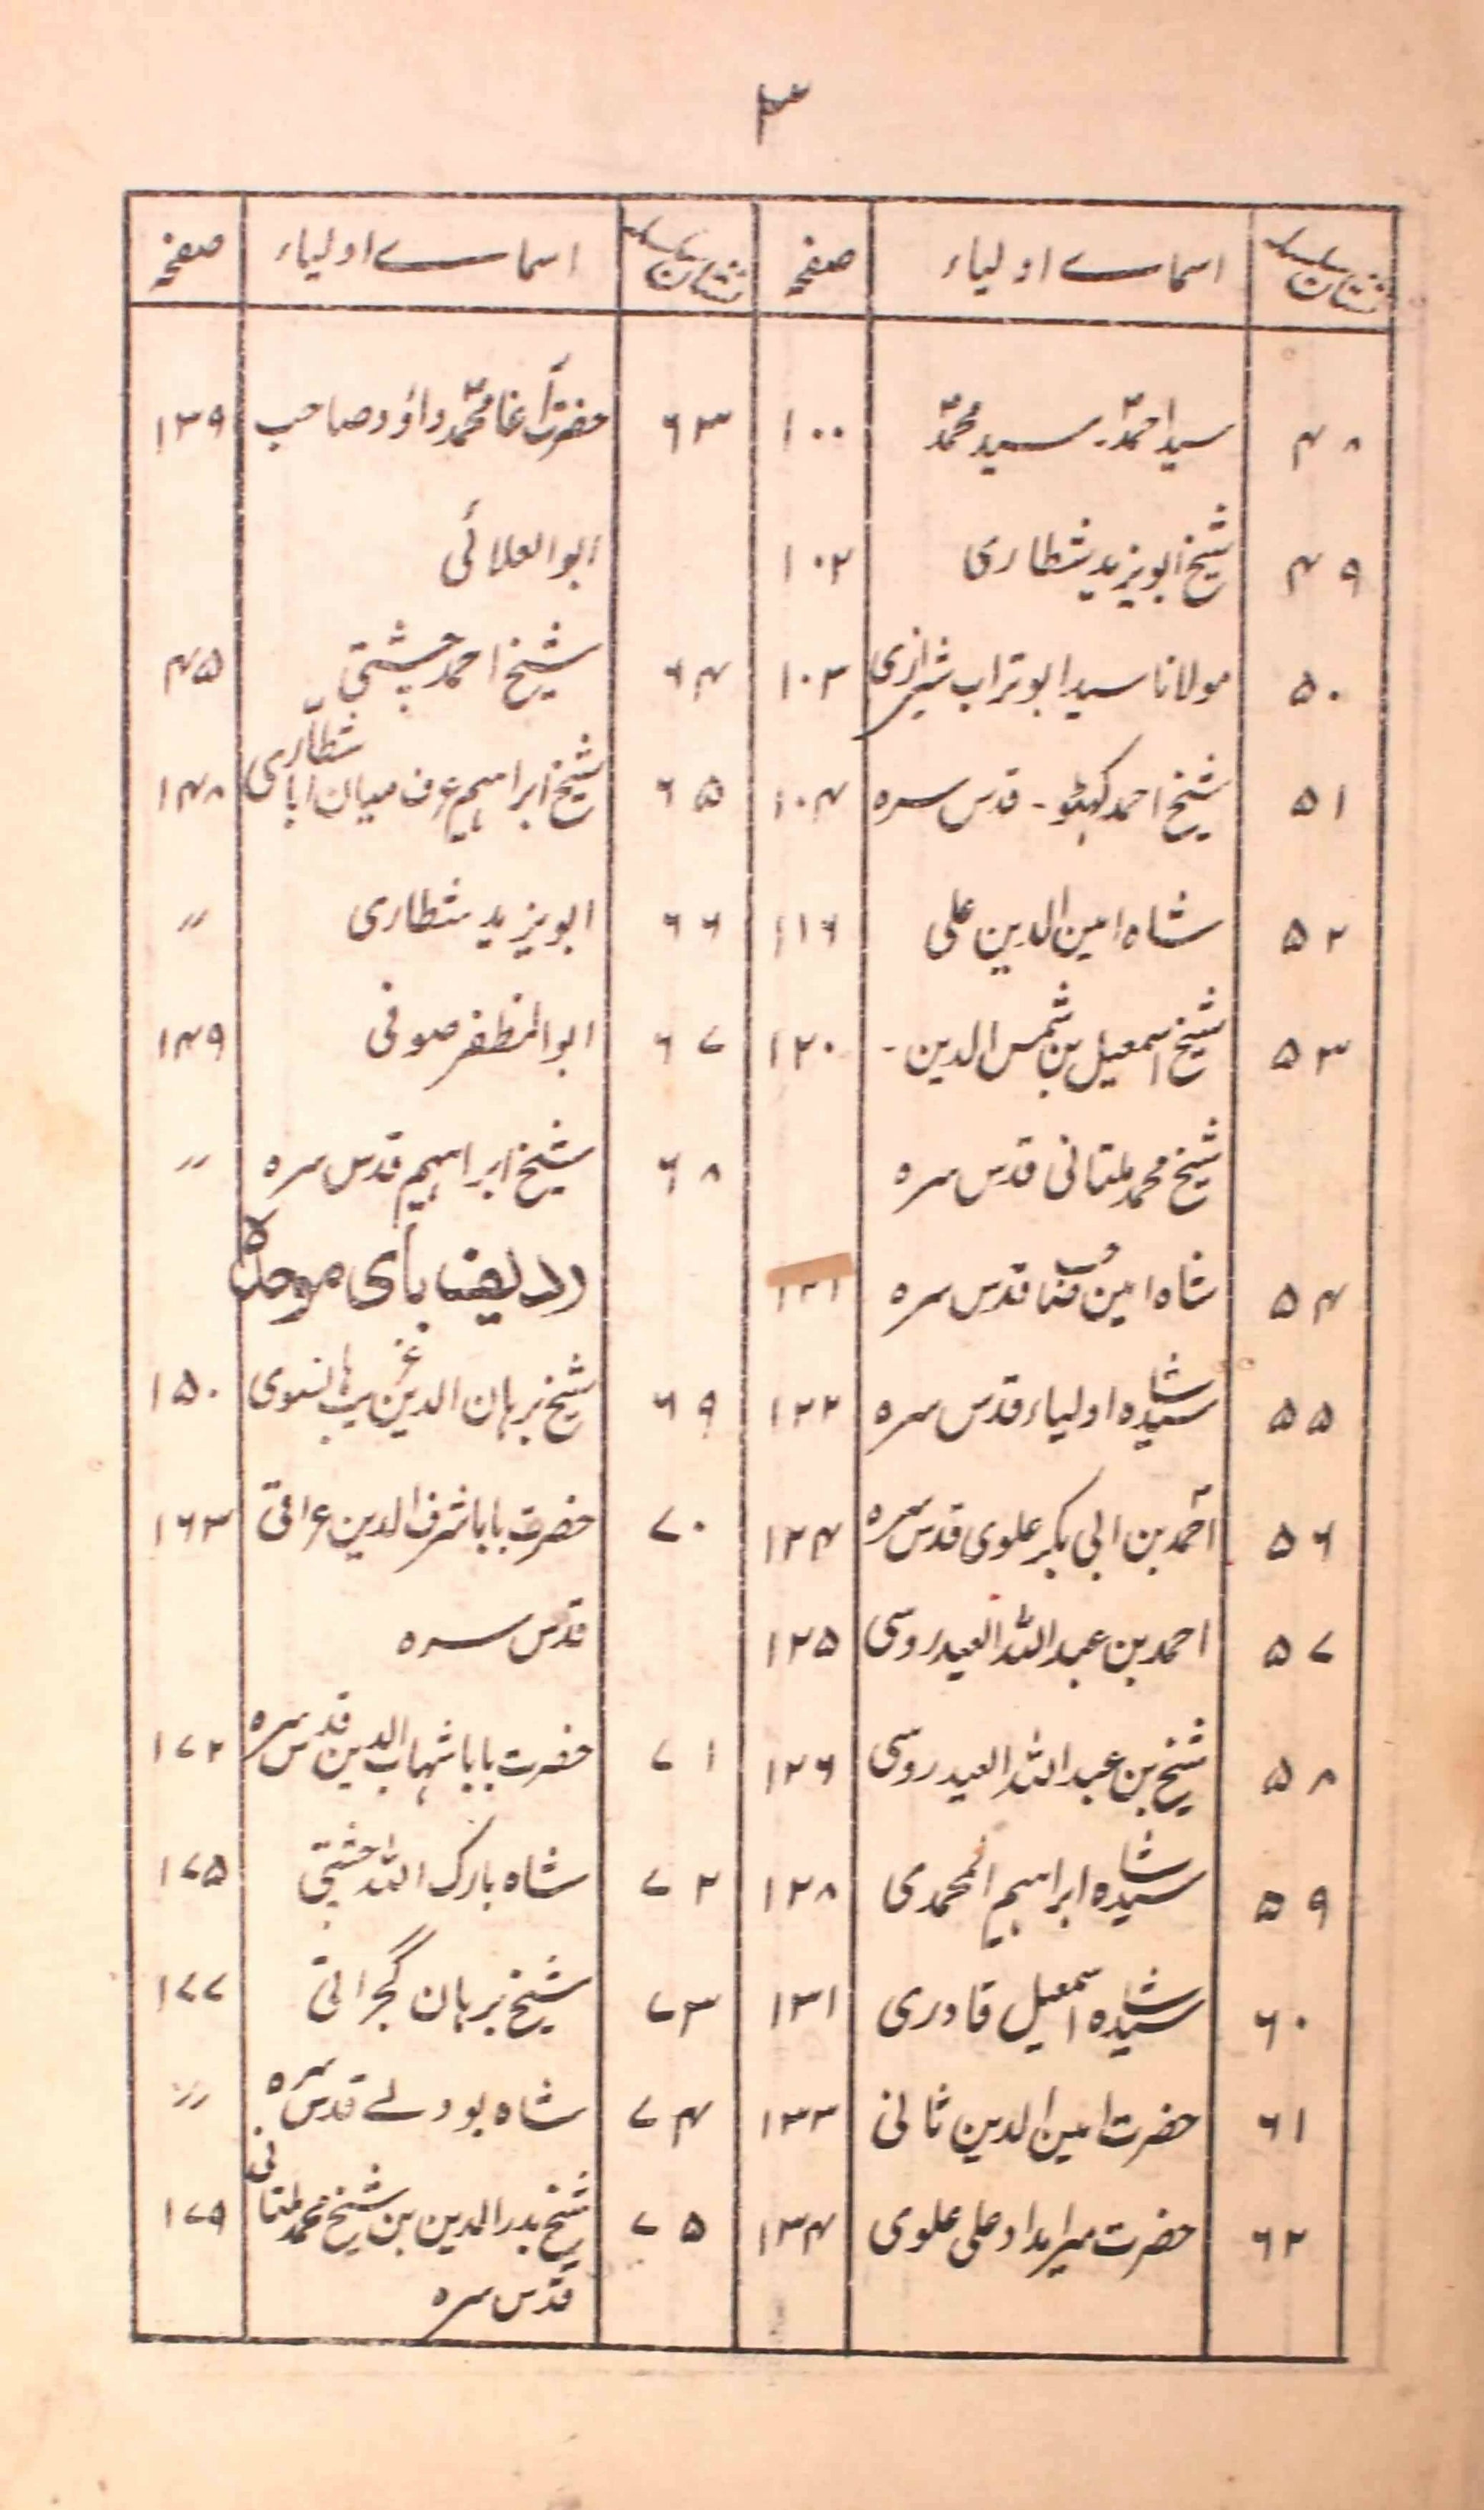 ۳
نشان سلسلہ | اسمائے اولیاء | صفحہ
۴۸ | سید احمدؒ۔ سید محمدؒ | ۱۰۰
۴۹ | شیخ ابویزید شطاری | ۱۰۲
۵۰ | مولانا سید ابو تراب شیرازی | ۱۰۳
۵۱ | شیخ احمد کہٹو۔ قدس سرہ | ۱۰۴
۵۲ | شاہ امین الدین علی | ۱۱۶
۵۳ | شیخ اسمعیل بن شمس الدین۔ | ۱۲۰
شیخ محمد ملتانی قدس سرہ
۵۴ | شاہ امین قدس سرہ | ۱۲۱
۵۵ | سید شاہ اولیاء قدس سرہ | ۱۲۲
۵۶ | احمد بن ابی بکر علوی قدس سرہ | ۱۲۴
۵۷ | احمد بن عبد اللہ العیدروسی | ۱۲۵
۵۸ | شیخ بن عبد اللہ العیدروسی | ۱۲۶
۵۹ | سید شاہ ابراہیم المحمدی | ۱۲۸
۶۰ | سید شاہ اسمعیل قادری | ۱۳۱
۶۱ | حضرت امین الدین ثانی | ۱۳۳
۶۲ | حضرت میر امداد علی علوی | ۱۳۴
نشان سلسلہ | اسمائے اولیاء | صفحہ
۶۳ | حضرت آغا محمد داؤد صاحب | ۱۳۹
ابو العلائی
۶۴ | شیخ احمد چشتی | ۴۵
۶۵ | شیخ ابراہیم عرف میان ابا شطّاری | ۱۴۸
۶۶ | ابویزید شطاری | 〃
۶۷ | ابو المظفر صوفی | ۱۴۹
۶۸ | شیخ ابراہیم قدس سرہ | 〃
ردیف بای موحدہ
۶۹ | شیخ برہان الدین غریب ہانسوی | ۱۵۰
۷۰ | حضرت بابا شرف الدین عراقی | ۱۶۳
قدس سرہ
۷۱ | حضرت بابا شہاب الدین قدس سرہ | ۱۷۲
۷۲ | شاہ بارک اللہ چشتی | ۱۷۵
۷۳ | شیخ برہان گجراتی | ۱۷۷
۷۴ | شاہ بودلے قدس سرہ | 〃
۷۵ | شیخ بدر الدین بن شیخ محمد ملتانی | ۱۷۹
قدس سرہ